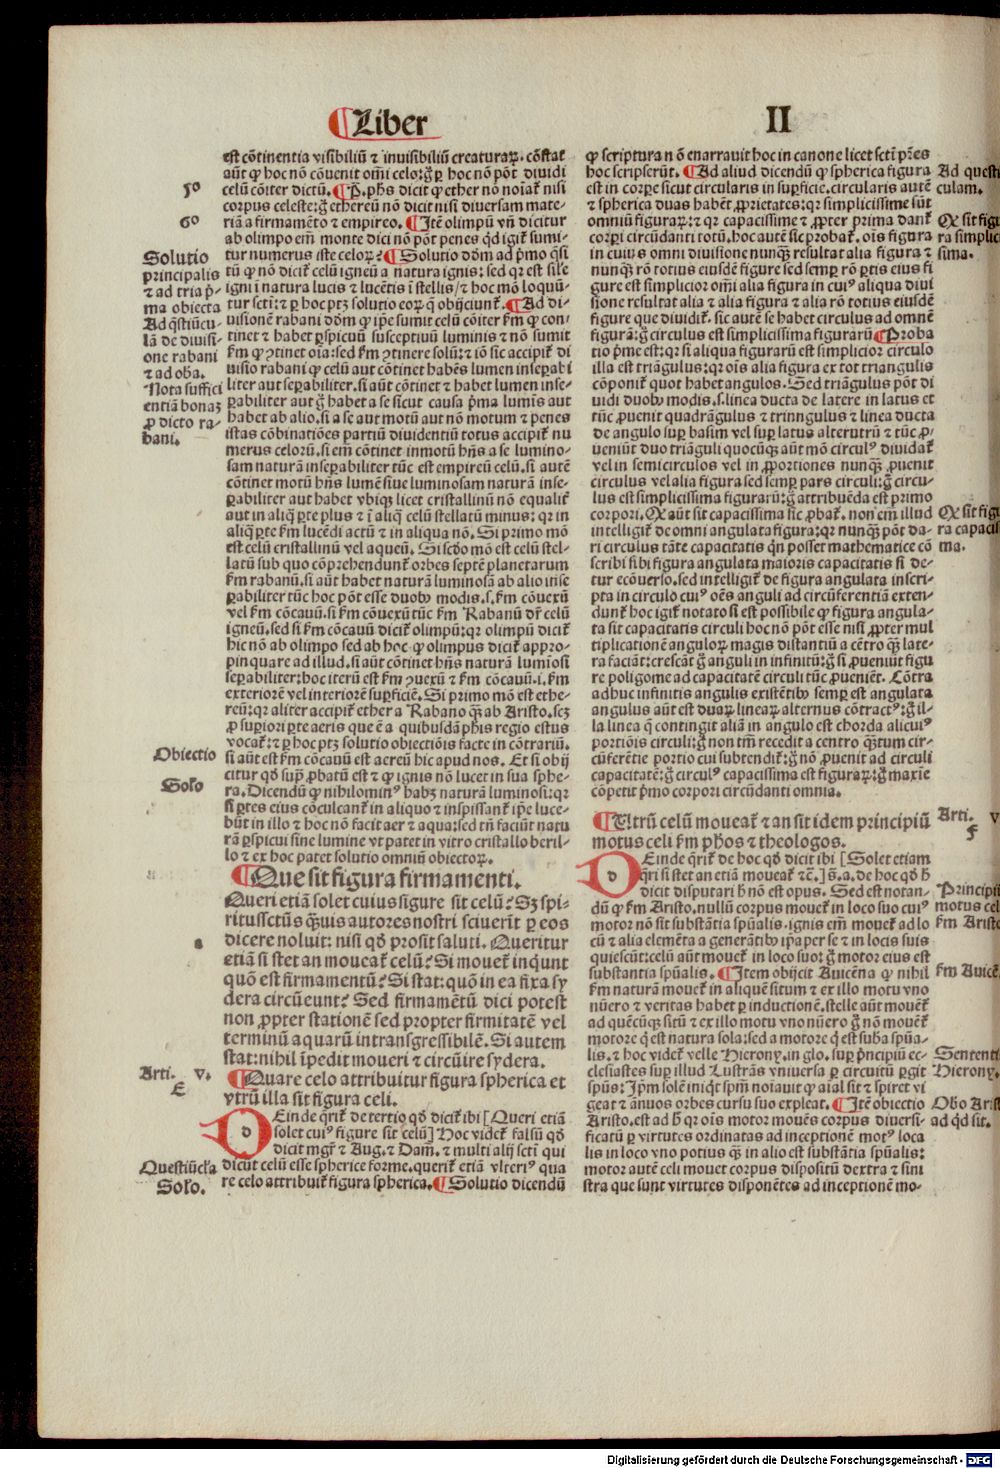 Liber
II
est cōtinentia visibiliū ⁊ inuisibiliū creaturaꝝ. cōstat̄
aūt ꝙ hoc nō cōuenit om̄i celo: g̊ ꝑ hoc nō pōt diuidi
celū cōiter dictū. P. phs dicit ꝙ ether nō noīat̄ nisi
corpus celeste: g̊ ethereū nō dicit nisi diuersam mate-
riā a firmamēto ⁊ empireo. Itē olimpū vn̄ dicitur
ab olimpo em̄ monte dici nō pōt penes qd igit̄ sumi-
tur numerus iste celoꝝ? Solutio dōm ad p̄mo q̄si
tū ꝙ nō dicit̄ celū igneū a natura ignis: sed qꝛ est sil'e
igni ī natura lucis ⁊ lucētis ī stellis/ ⁊ hoc mō loquū-
tur scti: ⁊ ꝑ hoc ptꝫ solutio eoꝝ q̄ obijciunt̄. Ad di-
uisionē rabani dōm ꝙ ip̄e sumit celū cōiter k̄m ꝙ con-
tinet ⁊ habet ꝑspicuū susceptiuū luminis ⁊ nō sumit
k̄m ꝙ ꝯtinet oīa: sed k̄m ꝯtinere solū: ⁊ iō sic accipit̄ di
uisio rabani ꝙ celū aut cōtinet habēs lumen inseꝑabi
liter aut seꝑabiliter. si aūt cōtinet ⁊ habet lumen inse-
ꝑabiliter aut g̊ habet a se sicut causa p̄ma lumīs aut
habet ab alio. si a se aut motū aut nō motum ⁊ penes
istas cōbinatiōes partiū diuidentiū totus accipit̄ nu
merus celorū. si em̄ cōtinet inmotū hn̄s a se lumino-
sam naturā inseꝑabiliter tūc est empireū celū. si autē
cōtinet motū hn̄s lumē siue luminosam naturā inse-
ꝑabiliter aut habet vbiqꝫ licet cristallinū nō equalit̄
aut in aliq̄ ꝑte plus ⁊ ī aliq̄ celū stellatū minus: qꝛ in
aliq̄ ꝑte k̄m lucēdi actū ⁊ in aliqua nō. Si primo mō
est celū cristallinū vel aqueū. Si scd̄o mō est celū stel-
latū sub quo cōprehendunt̄ orbes septē planetarum
k̄m rabanū. si aūt habet naturā luminosā ab alio inse
ꝑabiliter tūc hoc pōt esse duobꝫ modis. s. k̄m cōuexū
vel k̄m cōcauū. si k̄m cōuexū tūc k̄m Rabanū dr̄ celū
igneū. sed si k̄m cōcauū dicit̄ olimpū: qꝛ olimpū dicit̄
hic nō ab olimpo sed ab hoc ꝙ olimpus dicit̄ appro-
pinquare ad illud. si aūt cōtinet hn̄s naturā lumīosi
seꝑabiliter: hoc iterū est k̄m ꝯuexū ⁊ k̄m cōcauū. i. k̄m
exteriorē vel interiorē suꝑficiē. Si primo mō est ethe-
reū: qꝛ aliter accipit̄ ether a Rabano qꝫ ab Aristo. scꝫ
ꝓ suꝑiori ꝑte aeris que ē a quibusdā phis regio estus
vocat̄: ⁊ ꝑ hoc ptꝫ solutio obiectiōis facte in cōtrariū.
si aūt est k̄m cōcauū est aereū hic apud nos. Et si obij
citur qd supͣ ꝓbatū est ⁊ ꝙ ignis nō lucet in sua sphe-
ra. Dicendū ꝙ nihilominꝰ habꝫ naturā luminosi: qꝛ
si ꝑtes eius cōculcant̄ in aliquo ⁊ inspissant̄ ip̄e luce-
būt in illo ⁊ hoc nō facit aer ⁊ aqua: sed tn̄ faciūt natu
rā ꝑspicui sine lumine vt patet in vitro cristallo beril-
lo ⁊ ex hoc patet solutio omniū obiectoꝝ.
Que sit figura firmamenti.
Queri etiā solet cuius figure sit celū? Sꝫ spi-
ritussctūs qͣuis autores nostri sciuerīt ꝑ eos
dicere noluit: nisi qd prosit saluti. Queritur
etiā si stet an moueat̄ celū? Si mouet̄ inqunt
quō est firmamentū? Si stat: quō in ea fixa sy
dera circūeunt? Sed firmamētū dici potest
non ꝓpter stationē sed propter firmitatē vel
terminū aquarū intransgressibilē. Si autem
stat: nihil īpedit moueri ⁊ circūire sydera.
Quare celo attribuitur figura spherica et
vtrū illa sit figura celi.
DEinde q̄rit̄ de tertio qd dicit̄ ibi [Queri etiā
solet cuiꝰ figure sit celū] Hoc videt̄ falsū qd
dicit mgr̄ ⁊ Aug. ⁊ Dam. ⁊ multi alij scti qui
dicūt celū esse spherice forme. querit̄ etiā vlteriꝰ qua
re celo attribuit̄ figura spherica. Solutio dicendū
5º
6º
Solutio
principalis
⁊ ad tria p̄-
ma obiecta
Ad q̄stiūcu-
lā de diuisi-
one rabani
⁊ ad oba.
Nota suffici
entiā bonaꝫ
ꝓ dicto ra-
bani.
Obiectio
Solo
Arti. v.
E
Questiūcl'a
Solo.
ꝙ scriptura nō enarrauit hoc in canone licet scti pr̄es
hoc scripserūt. Ad aliud dicendū ꝙ spherica figura
est in corꝑe sicut circularis in suꝑficie. circularis autē
⁊ spherica duas habēt ꝓprietates: qꝛ simplicissime sūt
omniū figuraꝝ: ⁊ qꝛ capacissime ⁊ ꝓpter prima dant̄
corꝑi circūdanti totū. hoc autē sic probat̄. oīs figura
in cuiꝰ omni diuisione nunqꝫ resultat alia figura ⁊
nunqꝫ rō totius eiusdē figure sed semꝑ rō ꝑtis eius fi
gure est simplicior om̄i alia figura in cuiꝰ aliqua diui
sione resultat alia ⁊ alia figura ⁊ alia rō totius eiusdē
figure que diuidit̄. sic autē se habet circulus ad omnē
figurā: g̊ circulus est simplicissima figurarū. Proba
tio p̄me est: qꝛ si aliqua figurarū est simplicior circulo
illa est triāgulus: qꝛ oīs alia figura ex tot triangulis
cōponit̄ quot habet angulos. Sed triāgulus pōt di
uidi duobꝫ modis. s. linea ducta de latere in latus et
tūc ꝓuenit quadrāgulus ⁊ triangulus ⁊ linea ducta
de angulo suꝑ basim vel suꝑ latus alterutrū ⁊ tūc ꝓ-
ueniūt duo triāguli quocūqꝫ aūt mō circulꝰ diuidat̄
vel in semicirculos vel in ꝓportiones nunqꝫ ꝓuenit
circulus vel alia figura sed semꝑ pars circuli: g̊ circu-
lus est simplicissima figurarū: g̊ attribuēda est primo
corpori. Qꝙ aūt sit capacissima sic ꝓbat̄. non em̄ illud
intelligit̄ de omni angulata figura: qꝛ nunqꝫ pōt da-
ri circulus tāte capacitatis qn̄ posset mathematice cō
scribi sibi figura angulata maioris capacitatis si de-
tur ecōuerso. sed intelligit̄ de figura angulata inscri-
pta in circulo cuiꝰ oēs anguli ad circūferentiā exten-
dunt̄ hoc igit̄ notato si est possibile ꝙ figura angula-
ta sit capacitatis circuli hoc nō pōt esse nisi ꝓpter mul
tiplicationē anguloꝝ magis distantiū a cētro qꝫ late-
ra faciāt: crescāt g̊ anguli in infinitū: g̊ si ꝓueniūt figu
re poligome ad capacitatē circuli tūc ꝓueniēt. Cōtra
adhuc infinitis angulis existētibꝫ semper est angulata
angulus aūt est duaꝝ lineaꝝ alternus cōtractꝰ: g̊ il-
la linea q̄ contingit aliā in angulo est chorda alicuiꝰ
portiōis circuli: g̊ non tm̄ recedit a centro qꝫtum cir-
cūferētie portio cui subtendit̄: g̊ nō ꝓuenit ad circuli
capacitatē: g̊ circulꝰ capacissima est figuraꝝ: g̊ maxie
cōpetit p̄mo corpori circūdanti omnia.
Utrū celū moueat̄ ⁊ an sit idem principiū
motus celi k̄m phos ⁊ theologos.
DEinde q̄rit̄ de hoc qd dicit ibi [Solet etiam
q̄ri si stet an etiā moueat̄ ⁊c̄.] s. a. de hoc qd h̄
dicit disputari h̄ nō est opus. Sed est notan-
dū ꝙ k̄m Aristo. nullū corpus mouet̄ in loco suo cuiꝰ
motor nōn sit substātia spūalis. ignis em̄ mouet̄ ad lo
cū ⁊ alia elemēta a generātibꝫ ip̄a per se ⁊ in locis suis
quiescūt: celū aūt mouet̄ in loco suo: g̊ motor eius est
substantia spūalis. Item obijcit Auicēna ꝙ nihil
k̄m naturā mouet̄ in aliquē situm ⁊ ex illo motu vno
nūero ⁊ veritas habet ꝑ inductionē. stelle aūt mouēt̄
ad quēcūqꝫ sitū ⁊ ex illo motu vno nūero g̊ nō mouēt̄
motore q̄ est natura sola: sed a motore q̄ est suba spūa-
lis. ⁊ hoc videt̄ velle Hierony. in glo. suꝑ p̄ncipiū ec-
clesiastes suꝑ illud Lustrās vniuersa ꝑ circuitū ꝑgit
spūs: Ip̄m solē iniqt spm̄ noīauit ꝙ aīal sit ⁊ spiret vi
geat ⁊ ānuos orbes cursu suo expleat. Itē obiectio
Aristo. est ad h̄ qꝛ oīs motor mouēs corpus diuersi-
ficatū ꝑ virtutes ordinatas ad inceptionē motꝰ loca
lis in loco vno potius qꝫ in alio est substātia spūalis:
motor autē celi mouet corpus dispositū dextra ⁊ sini
stra que sunt virtutes disponētes ad inceptionē mo-
Ad questi
culam.
Qꝙ sit figu
ra simplic
sima.
Qꝙ sit figu
ra capaci
ma.
Arti. v
F
Principi
motus cel
k̄m Aristo
k̄m Auicē.
Sententi
Hierony.
Obo Arist
ad qd sit.
Digitalisierung gefördert durch die Deutsche Forschungsgemeinschaft - DFG